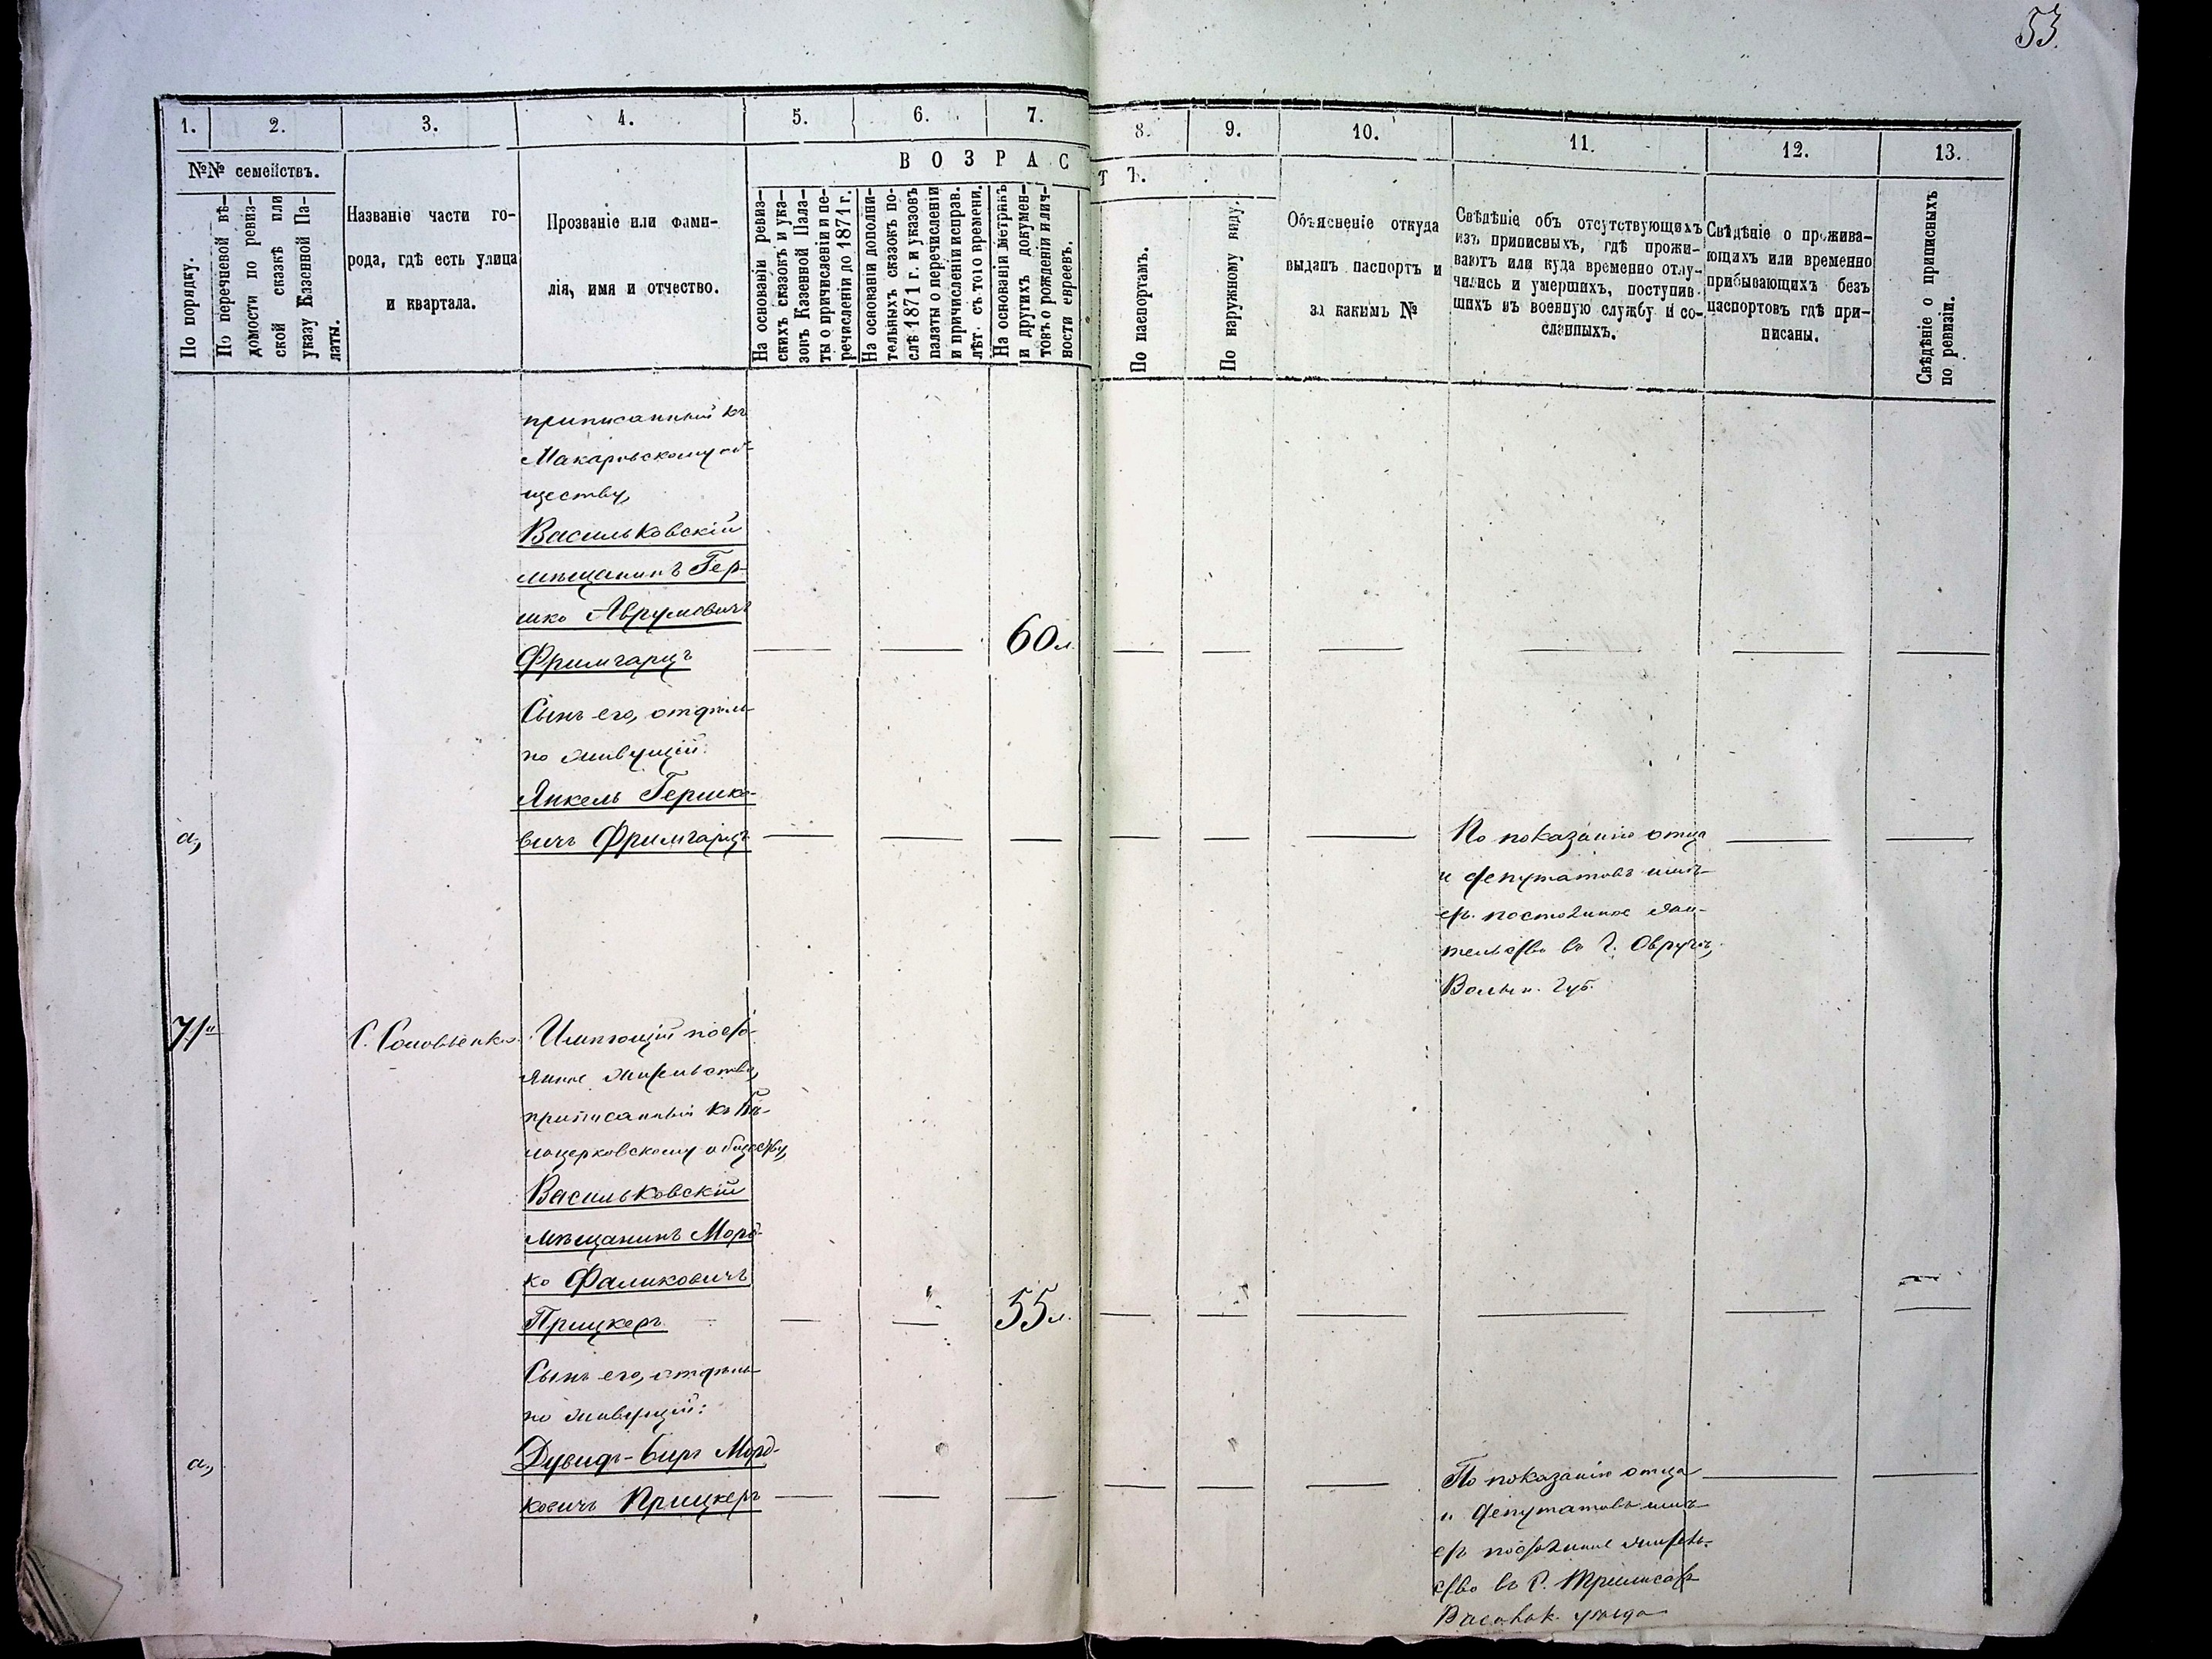 53.
1. 2. 3. 4. 5. 6. 7. 8. 9. 10. 11. 12. 13.
№№ семействъ.
В О З Р А С Т Ъ.
По порядку.
По перечневой вѣ-
домости по ревиз-
ской сказкѣ или
указу Казенной Па-
латы.
Названіе части го-
рода, гдѣ есть улица
и квартала.
Прозваніе или фами-
лія, имя и отчество.
На основаніи ревиз-
скихъ сказокъ и ука-
зовъ Казенной Пала-
ты о причисленіи и пе-
речисленіи до 1871 г.
На основаніи дополни-
тельныхъ сказокъ по-
слѣ 1871 г. и указовъ
палаты о перечисленіи
и причисленіи исправ.
лѣт. съ того времени.
На основаніи метрикъ
и другихъ докумен-
товъ о рожденіи и лич-
ности евреевъ.
По паспортамъ.
По наружному виду.
Объясненіе откуда
выданъ паспортъ и
за какимъ №
Свѣдѣніе объ отсутствующихъ
изъ приписныхъ, гдѣ прожи-
ваютъ или куда временно отлу-
чились и умершихъ, поступив-
шихъ въ военную службу и со-
сланныхъ.
Свѣдѣніе о прожива-
ющихъ или временно
прибывающихъ безъ
паспортовъ гдѣ при-
писаны.
Свѣдѣніе о приписныхъ
по ревизіи.
приписанный къ
Макаровскому об-
ществу,
Васильковскій
мѣщанинъ Гер-
шко Аврумовичъ
Фримгарцъ 60 л.
Сынъ его, отдѣль-
но живущій:
Янкель Гершко-
а, вичъ Фримгарцъ По показанію отца
и депутатовъ имѣ-
етъ постоянное жи-
тельство въ г. Овручѣ,
Волын. губ.
Имѣющій посто-
янное жительство,
приписанный къ Бѣ-
лоцерковскому обществу,
Васильковскій
мѣщанинъ Морд-
ко Фаликовичъ
Прицкеръ 55 л.
Сынъ его, отдѣль-
но живущій:
Дувидъ-Беръ Морд-
а, ковичъ Прицкеръ По показанію отца
и депутатовъ имѣ-
етъ постоянное житель-
ство въ с. Трилисахъ
Васильк. уѣзда